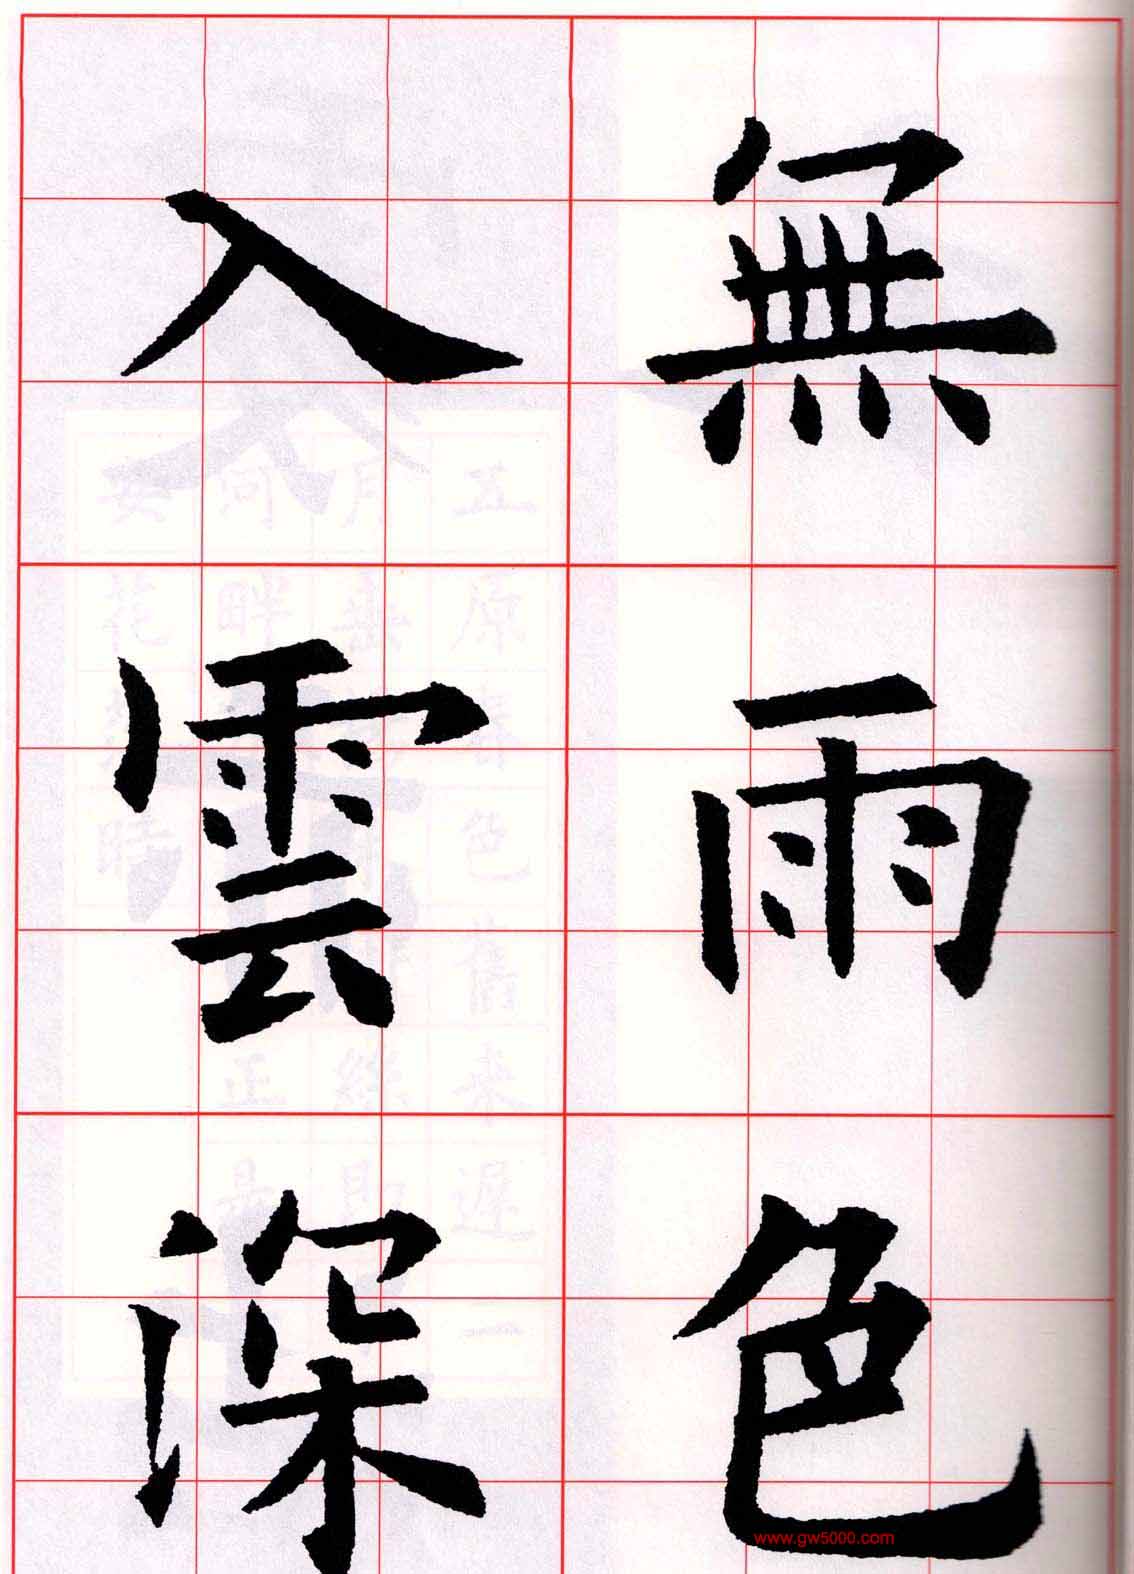 無雨色
入雲深
www.gw5000.com